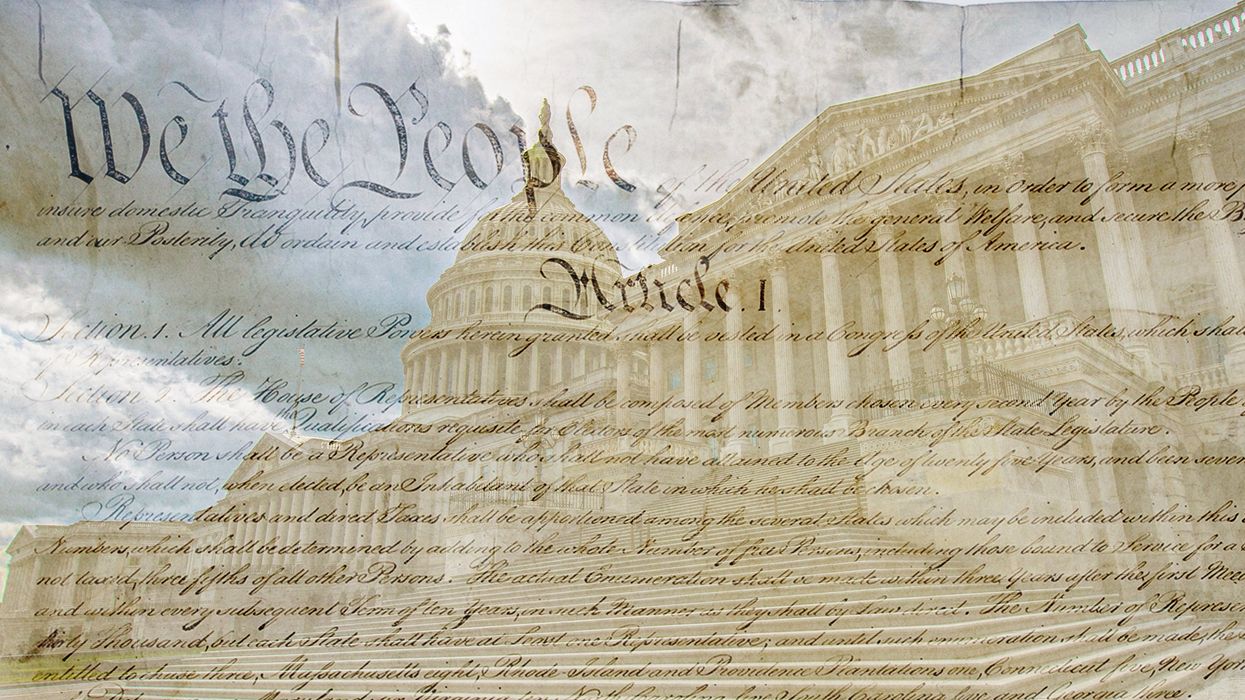 We the People of the United States, in Order to form a more
insure domestic Tranquility, provide for the common defence, promote the general Welfare, and secure the
and our Posterity, do ordain and establish this Constitution for the United States of America.
Article. I.
Section. 1. All legislative Powers herein granted shall be vested in a Congress of the United States, which shall
of Representatives.
Section. 2. The House of Representatives shall be composed of Members chosen every second Year by the People
in each State shall have Qualifications requisite for Electors of the most numerous Branch of the State Legislature.
No Person shall be a Representative who shall not have attained to the Age of twenty five Years, and been seven
and who shall not, when elected, be an Inhabitant of that State in which he shall be chosen.
Representatives and direct Taxes shall be apportioned among the several States which may be included within this
Numbers, which shall be determined by adding to the whole Number of free Persons, including those bound to Service for a
not taxed, three fifths of all other Persons. The actual Enumeration shall be made within three Years after the first
and within every subsequent Term of ten Years, in such Manner as they shall by Law direct. The Number of
thirty Thousand, but each State shall have at Least one Representative; and until such enumeration shall be made, the
entitled to chuse three, Massachusetts eight, Rhode-Island and Providence Plantations one, Connecticut five, New York